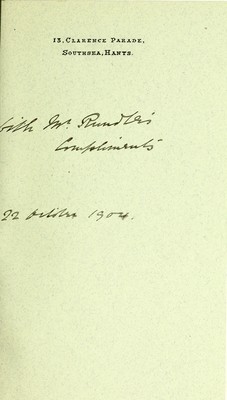 13, CLARENCE PARADE,
SOUTHSEA, HANTS.
With Mr. Rundle's
Compliments
22 October 1904.